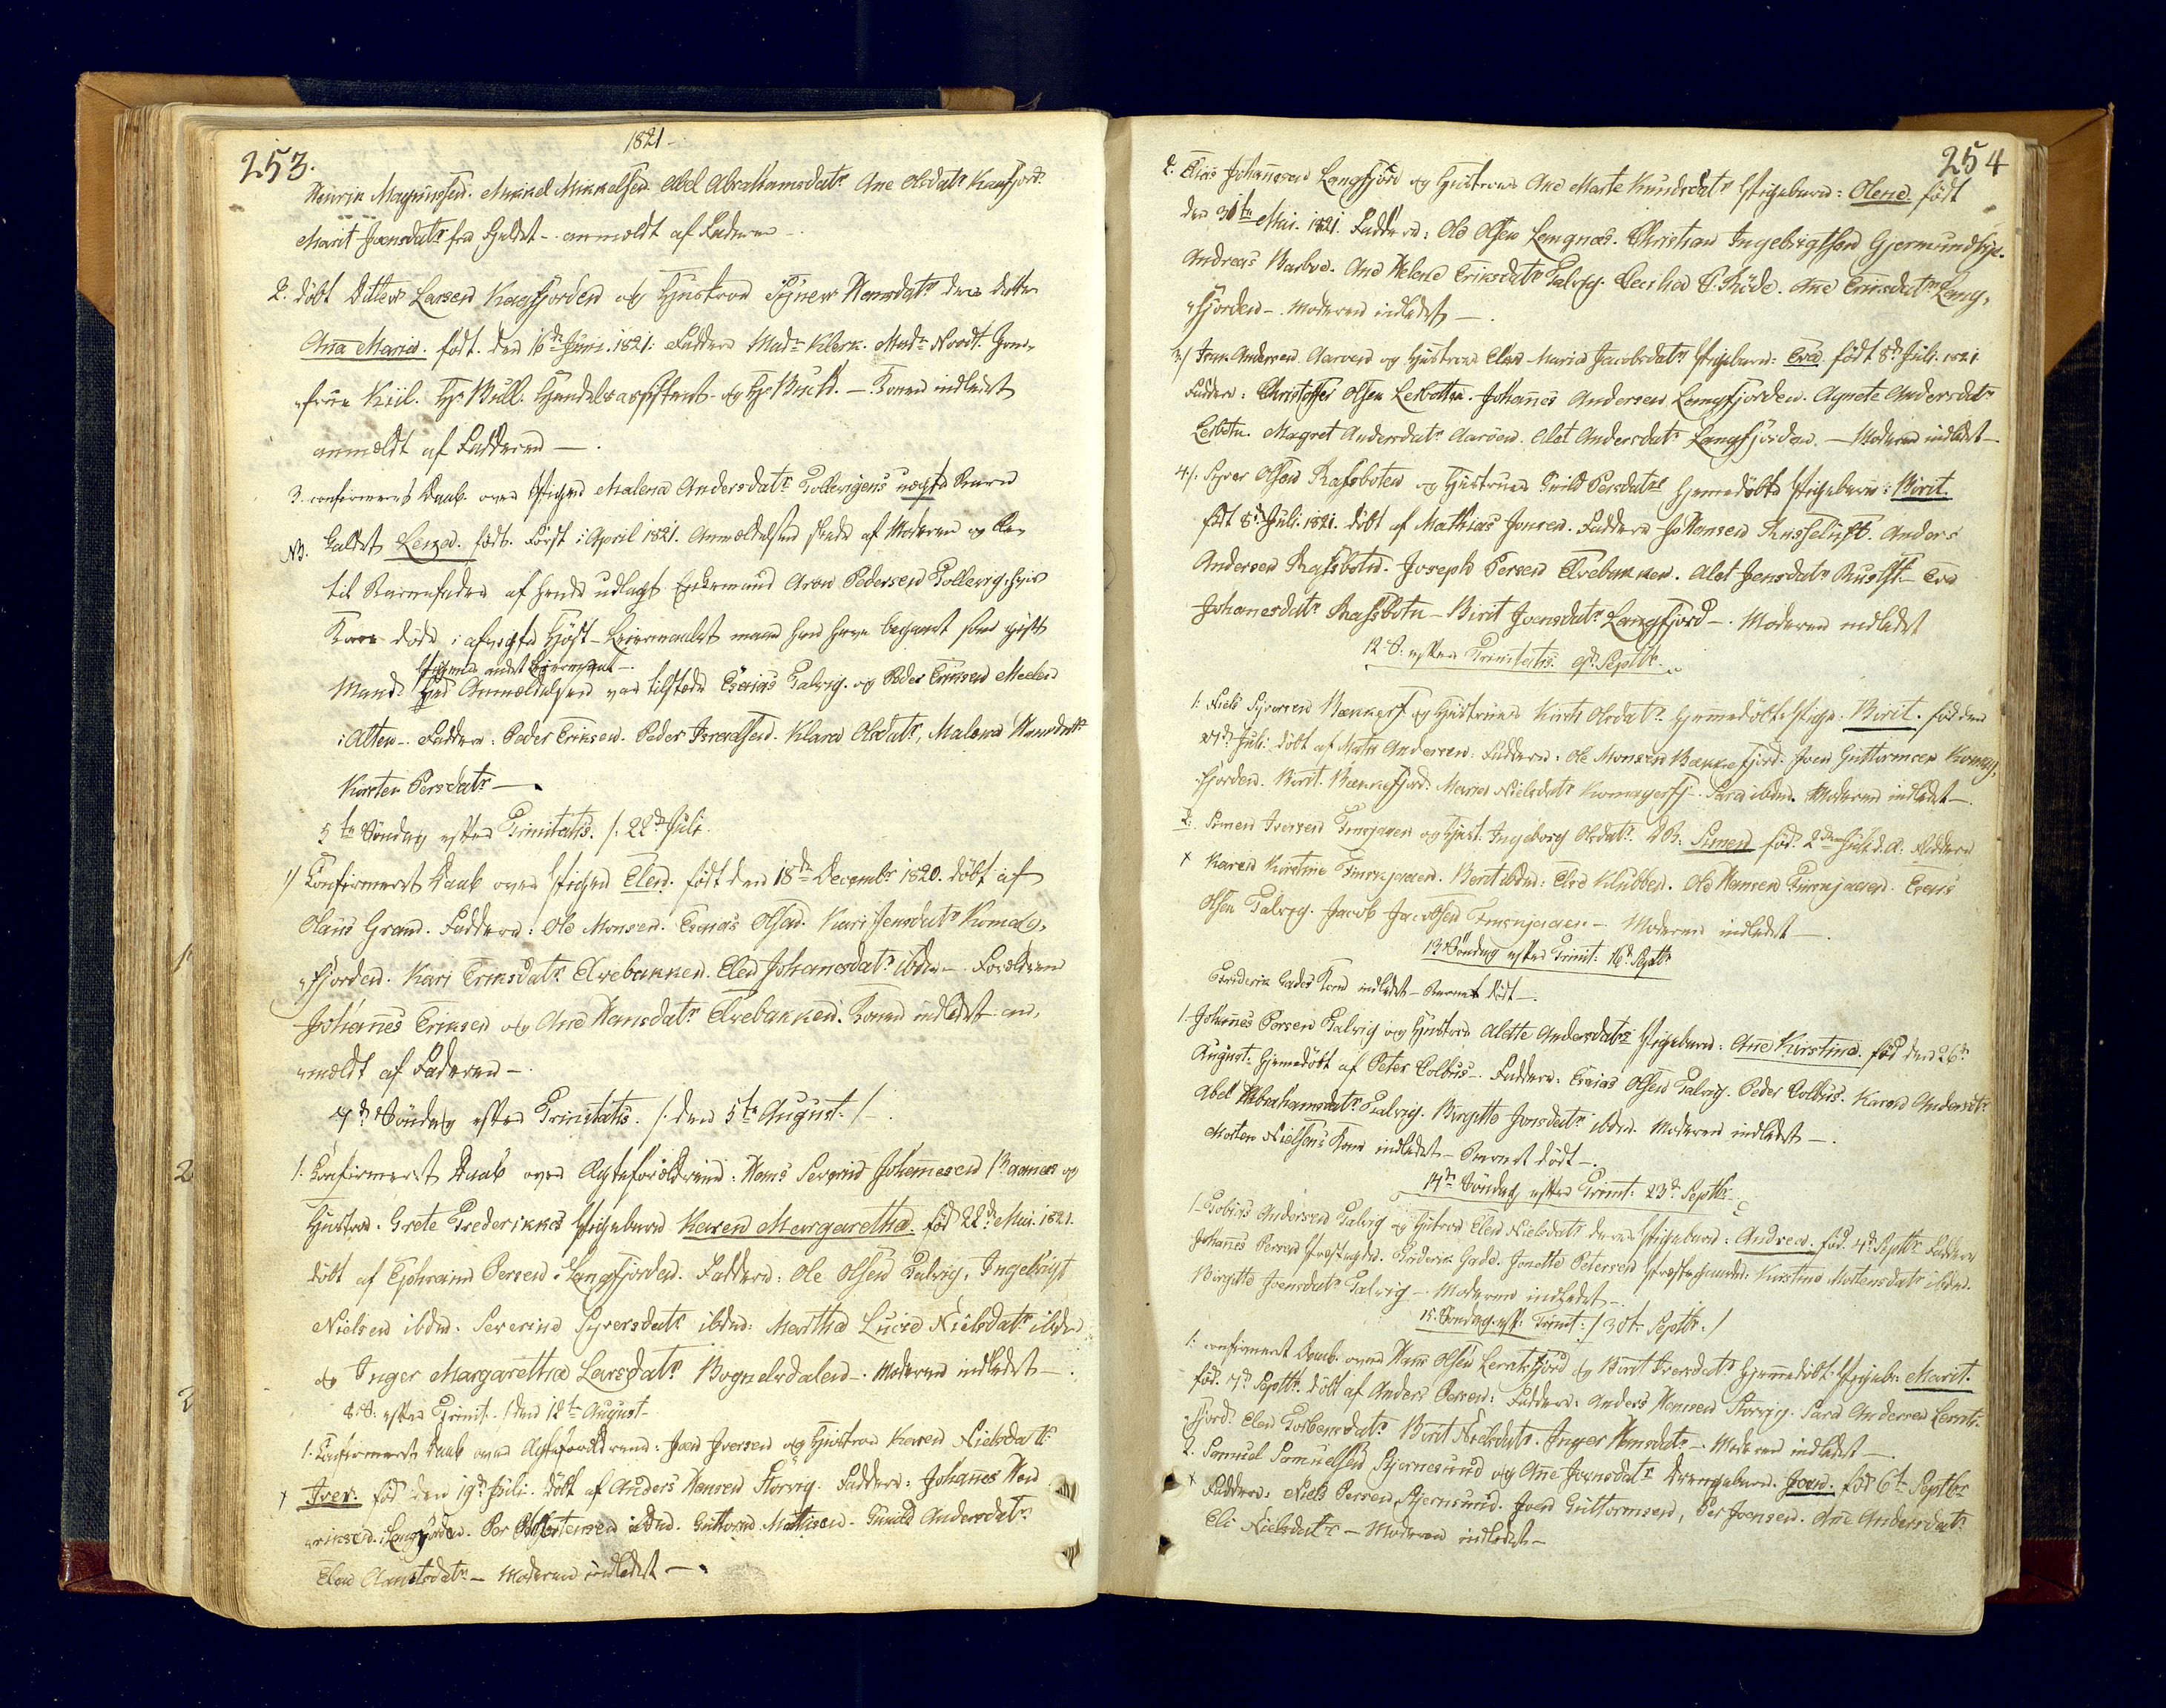 253.
1821-
Henrik Magnussen. Mikkel Mikkelsen. Abel Abrahamsdatr Ane Olsdatr Kaafjord.
Marit Joensdatr fra Fieldet - anmeldt af Faderen -
2. döbt Ditlew Larsen Kaafjorden og Hustrue Signer Hansdatr deres datter
Ana Maria. født. den 16de Juni. 1821. Faddere Madr Klerk. Madr Noodt. Jom-
-frue Kiil. Hr Bull. Handelsassistent og Hr Buck. - Konen indledet
anmeldt af Fadderen -
3. confirmeret Daab over Pigen Malena Andersdatr Tollevigens uægte Barn
NB. kaldet Lena. født. Først i April 1821. Anmeldelsen skede af Moderen og blev
til Barnefader af hende udlagt Enkemand Aron Pedersen Tollevig, hvis
Kone døde i afvigte Høst - Leiermaalet maae han have begaaet som gift
Pigens andet Leiermaal -
Mand. Ved Anmeldelsen var tilstede Esaias Talvig. og Peder Eriksen Meelen
i Alten - Faddere: Peder Eriksen. Peder Israelsen. Klara Olsdatr, Malena Hansdatr
Kirsten Persdatr -
5te Söndag efter Trinitatis. /: 22de Juli.
1) Confirmeret Daab over Pigen Elen. født den 18de Decembr 1820. döbt af
Olaus Grand. Faddere: Ole Monsen. Esaias Olsen. Kari Jensdatr Komag-
-fjorden. Kari Eriksdatr Elvebakken. Elen Johanesdatr ibdn - Forældrene
Johañes Eriksen og Ane Hansdatr Elvebakken. Konen indledet an-
-meldt af Faderen -
7de Söndag efter Trinitatis. /: den 5te August: /-
1. Confirmeret Daab over Ægteforældrene: Hans Severin Johannesen Baanes og
Hustrue. Grete Frederikkes Pigebarn Karen Margaretha. fød 22de Mai. 1821.
döbt af Ephraim Persen i Langfjorden. Faddere: Ole Olsen Talvig, Ingebrigt
Nielsen ibdn. Severine Syversdatr ibdn: Martha Lucie Nielsdatr ibdn
og Inger Margaretha Larsdatr Bognelvdalen - Moderen indledet -
8. S: efter Trinit. / den 12te August -
1. Confirmeret Daab over Ægteforældrene: Joen Iversen og Hustrue Karen Nielsdatr
x Iver. fød den 19de Juli. döbt af Anders Hansen Storvig. Faddere: Johañes Hen
-riksen i Langfjorden. Per Mortensen ibdn. Guttorm Mattisen - Gunild Andersdatr
Elen Aanetsdatr - Moderen indledet -
254
2. Elias Johannesen Langfjord og Hustrue Ane Marte Knudsdatr Pigebarn: Olena. født
den 31te Mai. 1821. Faddere: Ole Olsen Langnæs. Christian Ingebrigtsen Gjermundbye.
Andreas Barboe. Ane Helene Eriksdatr Talvig. Cecilia S: Röde. Ane Eriksdatr Lang,
-fjorden - Moderen indledet -
3/ Andersen Aaroen og Hustrue Elen Maria Jacobsdatr Pigebarn: Eva. født 8de Juli. 1821.
Faddere: Christoffer Olsen Lerbotten. Johañes Andersen Langfjorden. Agnete Andersdatr
Lerbotn. Magret Andersdatr Aaröen. Alet Andersdatr Langfjorden. - Moderen indledet -
4/. Syver Olsen Rafsbotten og Hustrue Gunild Persdatr hjemedöbte Pigebarn: Birit.
født 8de Juli. 1821. döbt af Mathias Jonsen. Faddere Jo Hansen Russeluft. Anders
Andersen Rafsbotn. Joseph Persen Elvebakken. Alet Jensdatr Rusft - Eva
Johanesdatr Rafsbotn - Birit Joensdatr Langfjord - Moderen indledet
12. S. efter Trinitatis: 9de Septbr.
1. Niels Syversen Bækkerf og Hustrue Kirsti Olsdatr hjemedöbte Pige. Birit. fød den
27de Juli. döbt af Mats Andersen: Faddere: Ole Monsen Bækkefjord. Joen Guttormsen Komag,
fjorden. Birit. Bækkefjord. Maria Nielsdatr Komagerfj - Sara ibdn. Moderen indledet -
2. Simen Iversen og Hust. Ingeborg Olsdatr. DB: Simen fød. 2den Juli d. A. Faddere
x Karen Kirstine. Berit ibdn: Elve Klubben. Ole Hansen. Esaias
Olsen Talvig. Jacob Jacobsen - Moderen indledet -
13 Söndag efter Trinit: 16de Septbr
Friderik Gades Kone indledet - Barnet dödt -
1. Johañes Persen Talvig og Hustrue Alette Andersdatr Pigebarn: Ane Kirstina. fød den 26de
August. hjemedöbt af Peter Colbus - Faddere: Esaias Olsen Talvig. Peder Colbus. Karen Andersdtr
Abel Abrahamsdatr Talvig. Birgitte Jonsdatr ibdn. Moderen indledet -
Morten Nielsens Kone indledet - Barnet dödt -
14de Söndag efter Trinit: 23de Septbr -
1. Tobias Andersen Talvig og Hustrue Elen Nielsdatr deres Pigebarn: Andrea. fød. 4de Septbr Faddere
Johañes Persen Præstegden. Friderik Gade. Jonette Petersen Præstegaarden. Kirstine Mortensdatr ibdn.
Birgitte Joensdatr Talvig - Moderen indledet -
15. Söndag eft: Trinit: / 30te Septbr. /
1: confirmeret Daab. over Hans Olsen Lerretsfjord og Birit Iversdatr hjemedöbt Pigebr. Marit.
fød. 7de Septbr. döbt af Anders Persen: Faddere: Anders Hansen Storvig. Sara Andersen Lerrets-
-fjord. Elen Torbensdatr. Birit Nielsdatr. Inger Hansdatr - Moderen indledet -
2. Samuel Samuelsen Stjernesund og Ane Joensdatr Drengebarn. Joen. fød 6te Septbr
x Faddere: Niels Persen, Stjernsund. Joen Guttormsen, Per Joensen. Ane Andersdatr
Eli Nielsdatr - Moderen indledet -